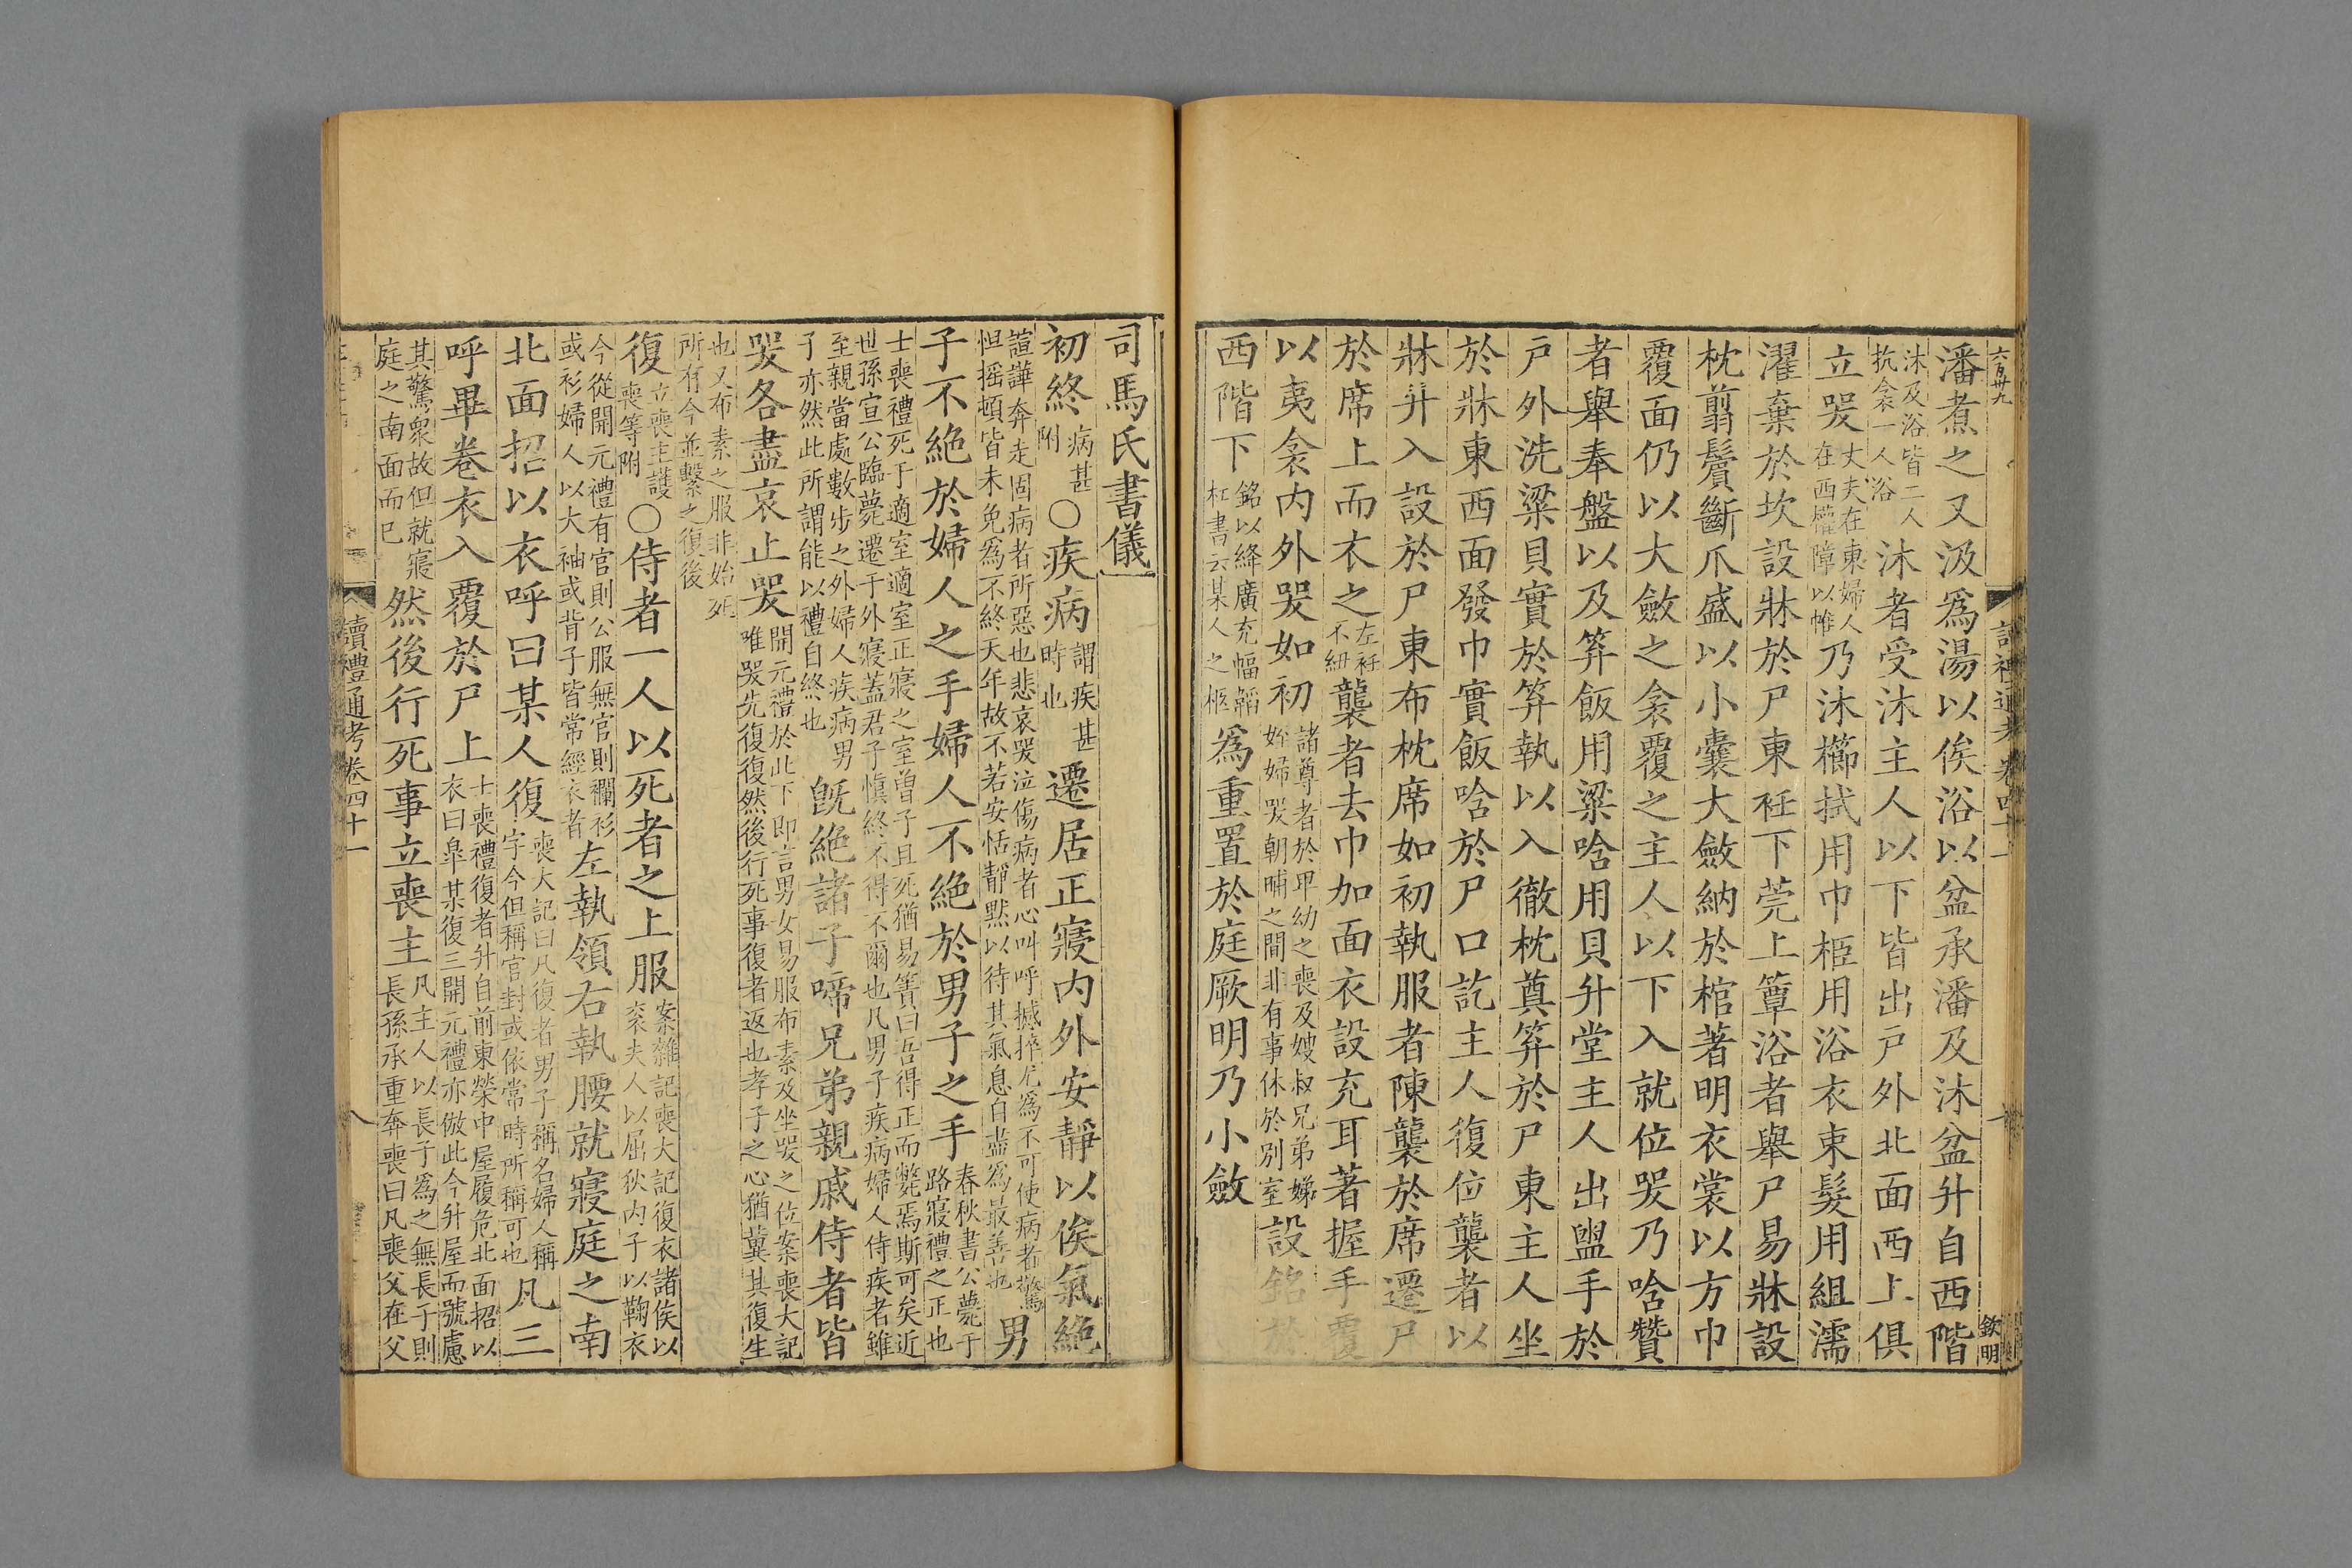 六百卅九
欽明
潘煮之又汲爲湯以俟浴以盆承潘及沐盆升自西階
沐及浴皆二人抗衾一人浴沐者受沐主人以下皆出戸外北面西上俱
立哭丈夫在東婦人在西權障以帷乃沐櫛拭用巾柩用浴衣束髮用組濡
濯棄於坎設牀於尸東衽下莞上簟浴者舉尸易牀設
枕翦鬢斷爪盛以小囊大斂納於棺著明衣裳以方巾
覆面仍以大斂之衾覆之主人以下入就位哭乃唅贊
者舉奉盤以及笲飯用粱唅用貝升堂主人出盥手於
戸外洗粱貝實於笲執以入徹枕奠笲於尸東主人坐
於牀東西面發巾實飯唅於尸口訖主人復位襲者以
牀升入設於尸東布枕席如初執服者陳襲於席遷尸
於席上而衣之左衽不紐襲者去巾加面衣設充耳著握手覆
以夷衾内外哭如初諸尊者於卑幼之喪及嫂叔兄弟娣姪婦哭朝晡之間非有事休於別室設銘於
西階下銘以絳廣充幅韜杠書云某人之柩爲重置於庭厥明乃小斂
司馬氏書儀
初終病甚附〇疾病謂疾甚時也遷居正寢内外安靜以俟氣絶
諠譁奔走固病者所惡也悲哀哭泣傷病者心叫呼撼捽尤爲不可使病者驚怛摇頓皆未免爲不終天年故不若安恬靜默以待其氣息自盡爲最善也男
子不絶於婦人之手婦人不絶於男子之手春秋書公薨于路寢禮之正也
士喪禮死于適室適室正寢之室曽子且死猶易簀曰吾得正而斃焉斯可矣近世孫宣公臨薨遷于外寢蓋君子愼終不得不爾也凡男子疾病婦人侍疾者雖
至親當處數步之外婦人疾病男子亦然此所謂能以禮自終也旣絶諸子啼兄弟親戚侍者皆
哭各盡哀止哭開元禮於此下即言男女易服布素及坐哭之位案喪大記唯哭先復復然後行死事復者返也孝子之心猶冀其復生
也又布素之服非始死所有今並繫之復後
復立喪主護喪等附〇侍者一人以死者之上服案雜記喪大記復衣諸侯以衮夫人以屈狄内子以鞠衣
今從開元禮有官則公服無官則襴衫或衫婦人以大袖或背子皆常經衣者左執領右執腰就寢庭之南
北面招以衣呼曰某人復喪大記曰凡復者男子稱名婦人稱字今但稱官封或依常時所稱可也凡三
呼畢卷衣入覆於尸上士喪禮復者升自前東榮中屋履危北面招以衣曰臯某復三開元禮亦倣此今升屋而號慮
其驚衆故但就寢庭之南面而已然後行死事立喪主凡主人以長子爲之無長子則長孫承重奔喪曰凡喪父在父
讀禮通考卷四十一
八